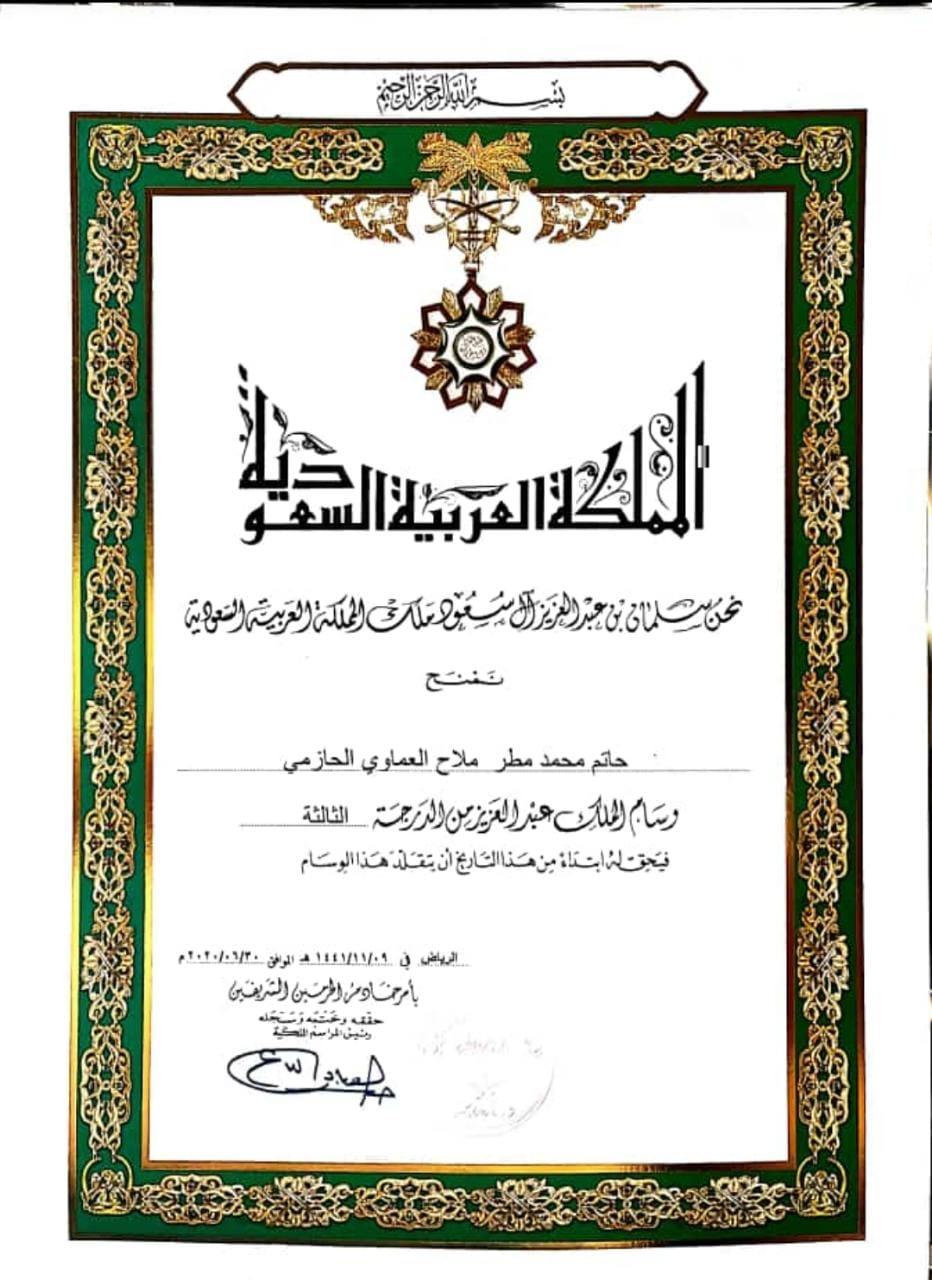 بسم الله الرحمن الرحيم
المملكة العربية السعودية
نحن سلمان بن عبد العزيز آل سعود ملك المملكة العربية السعودية
نمنح
حاتم محمد مطر ملاح العماوي الحازمي
وسام الملك عبد العزيز من الدرجة الثالثة
فيحق له ابتداءً من هذا التاريخ أن يتقلد هذا الوسام
الرياض في ١٤٤١/١١/٠٩ هـ الموافق ٢٠٢٠/٠٦/٣٠م
بأمر خادم الحرمين الشريفين
حققه وختمه وسجله
رئيس المراسم الملكية